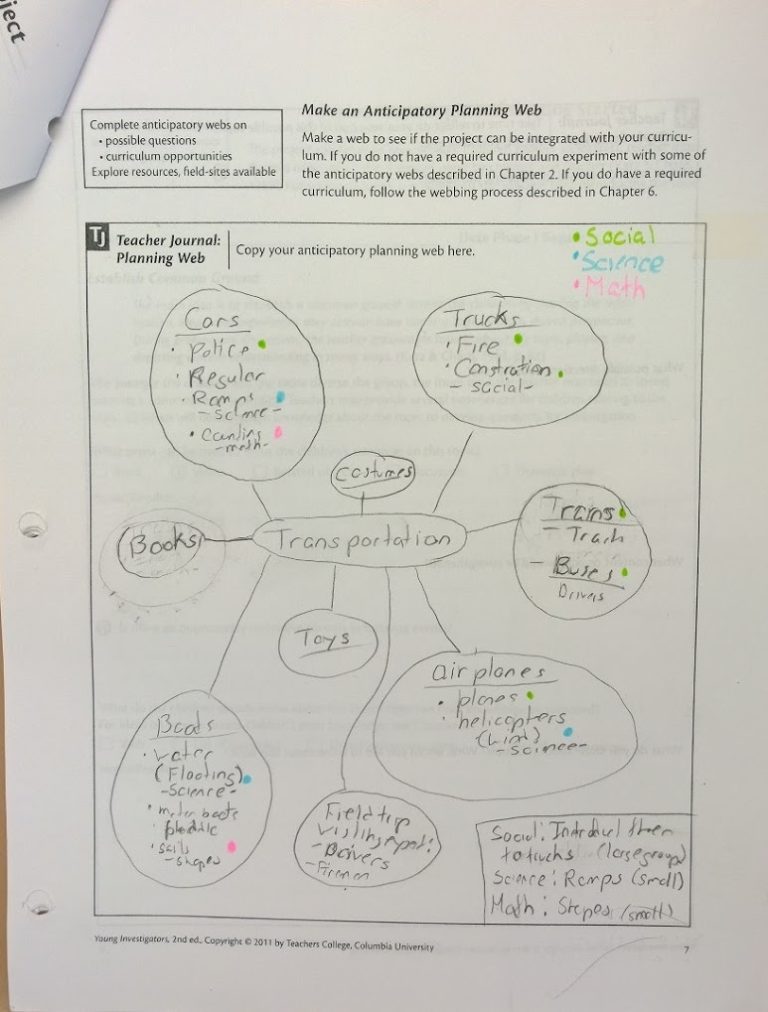 ject
Make an Anticipatory Planning Web
Complete anticipatory webs on
• possible questions
• curriculum opportunities
Explore resources, field-sites available
Make a web to see if the project can be integrated with your curricu-
lum. If you do not have a required curriculum experiment with some of
the anticipatory webs described in Chapter 2. If you do have a required
curriculum, follow the webbing process described in Chapter 6.
TJ Teacher Journal:
Planning Web
Copy your anticipatory planning web here.
• Social
• Science
• Math
Cars
• Police
• Regular
• Ramps
- Science -
• Counting
- math -
Trucks
• Fire
• Constration
- social -
Costumes
Books
Transportation
Trains
- Track
- Buses
Drivers
Toys
air planes
• planes
• helicopters
- science -
Boats
• water
(Floating)
- Science -
• motor boats
• paddle
• sails
- shapes
Field trip
- Drivers
- Firemen
Social:
to trucks (large group)
Science: Ramps (small)
Math: (small)
Young Investigators, 2nd ed., Copyright © 2011 by Teachers College, Columbia University
7